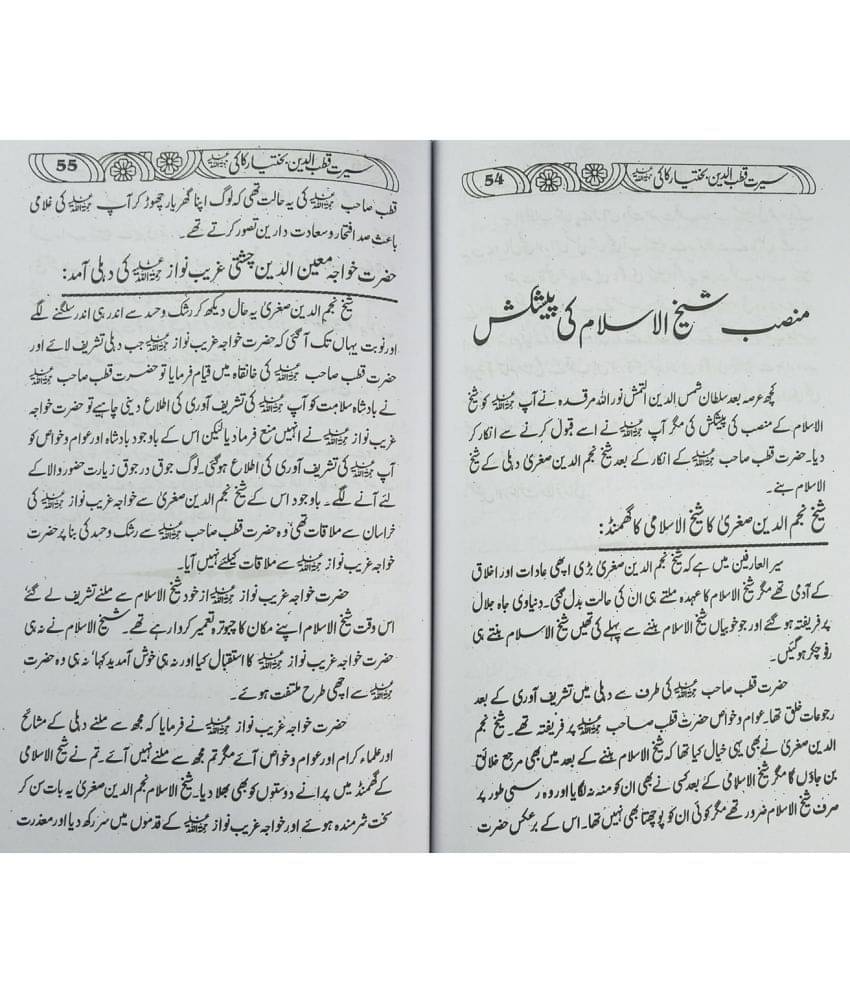 سیرت قطب الدین بختیار کاکی رحمۃ اللہ علیہ 54
منصب شیخ الاسلام کی پیشکش
کچھ عرصہ بعد سلطان شمس الدین التمش نور اللہ مرقدہ نے آپ رحمۃ اللہ علیہ کو شیخ
الاسلام کے منصب کی پیشکش کی مگر آپ رحمۃ اللہ علیہ نے اسے قبول کرنے سے انکار کر
دیا۔ حضرت قطب صاحب رحمۃ اللہ علیہ کے انکار کے بعد شیخ نجم الدین صغریٰ دہلی کے شیخ
الاسلام بنے۔
شیخ نجم الدین صغریٰ کا شیخ الاسلامی کا گھمنڈ:
سیر العارفین میں ہے کہ شیخ نجم الدین صغریٰ بڑی اچھی عادات اور اخلاق
کے آدمی تھے مگر شیخ الاسلام کا عہدہ ملتے ہی ان کی حالت بدل گئی۔ دنیاوی جاہ جلال
پر فریفتہ ہو گئے اور جو خوبیاں شیخ الاسلام بننے سے پہلے کی تھیں شیخ الاسلام بنتے ہی
رفو چکر ہو گئیں۔
حضرت قطب صاحب رحمۃ اللہ علیہ کی طرف سے دہلی میں تشریف آوری کے بعد
رجوعات خلق تھا۔ عوام و خواص حضرت قطب صاحب رحمۃ اللہ علیہ پر فریفتہ تھے۔ شیخ نجم
الدین صغریٰ نے بھی یہی خیال کیا تھا کہ شیخ الاسلام بننے کے بعد میں بھی مرجع خلائق
بن جاؤں گا مگر شیخ الاسلامی کے بعد کسی نے بھی ان کو منہ نہ لگایا اور وہ رسمی طور پر
صرف شیخ الاسلام ضرور تھے مگر کوئی ان کو پوچھتا بھی نہیں تھا۔ اس کے برعکس حضرت
سیرت قطب الدین بختیار کاکی رحمۃ اللہ علیہ 55
قطب صاحب رحمۃ اللہ علیہ کی یہ حالت تھی کہ لوگ اپنا گھر بار چھوڑ کر آپ رحمۃ اللہ علیہ کی غلامی
باعث صد افتخار و سعادت دارین تصور کرتے تھے۔
حضرت خواجہ معین الدین چشتی غریب نواز رحمۃ اللہ علیہ کی دہلی آمد:
شیخ نجم الدین صغریٰ یہ حال دیکھ کر رشک و حسد سے اندر ہی اندر سلگنے لگے
اور نوبت یہاں تک آ گئی کہ حضرت خواجہ غریب نواز رحمۃ اللہ علیہ جب دہلی تشریف لائے اور
حضرت قطب صاحب رحمۃ اللہ علیہ کی خانقاہ میں قیام فرمایا تو حضرت قطب صاحب رحمۃ اللہ علیہ
نے بادشاہ سلامت کو آپ رحمۃ اللہ علیہ کی تشریف آوری کی اطلاع دینی چاہیے تو حضرت خواجہ
غریب نواز رحمۃ اللہ علیہ نے انہیں منع فرما دیا لیکن اس کے باوجود بادشاہ اور عوام و خواص کو
آپ رحمۃ اللہ علیہ کی تشریف آوری کی اطلاع ہو گئی۔ لوگ جوق در جوق زیارت حضور والا کے
لئے آنے لگے۔ باوجود اس کے شیخ نجم الدین صغریٰ سے خواجہ غریب نواز رحمۃ اللہ علیہ کی
خراسان سے ملاقات تھی وہ حضرت قطب صاحب رحمۃ اللہ علیہ سے رشک و حسد کی بنا پر حضرت
خواجہ غریب نواز رحمۃ اللہ علیہ سے ملاقات کیلئے نہیں آیا۔
حضرت خواجہ غریب نواز رحمۃ اللہ علیہ از خود شیخ الاسلام سے ملنے تشریف لے گئے
اس وقت شیخ الاسلام اپنے مکان کا چبوترہ تعمیر کروا رہے تھے۔ شیخ الاسلام نے نہ ہی
حضرت خواجہ غریب نواز رحمۃ اللہ علیہ کا استقبال کیا اور نہ ہی خوش آمدید کہا' نہ ہی وہ حضرت
رحمۃ اللہ علیہ سے اچھی طرح ملتفت ہوئے۔
حضرت خواجہ غریب نواز رحمۃ اللہ علیہ نے فرمایا کہ مجھ سے ملنے دہلی کے مشائخ
اور علماء کرام اور عوام و خواص آئے مگر تم مجھ سے ملنے نہیں آئے۔ تم نے شیخ الاسلامی
کے گھمنڈ میں پرانے دوستوں کو بھی بھلا دیا۔ شیخ الاسلام نجم الدین صغریٰ یہ بات سن کر
سخت شرمندہ ہوئے اور خواجہ غریب نواز رحمۃ اللہ علیہ کے قدموں میں سر رکھ دیا اور معذرت